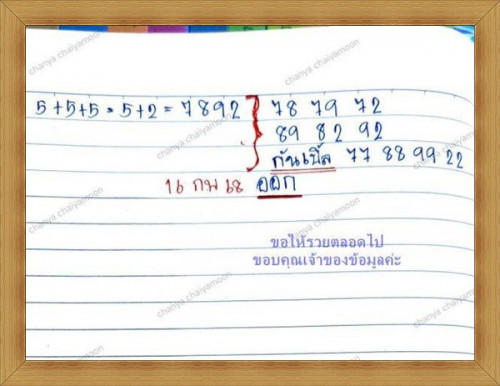 5+5+5 = 5+2 = 7892 } 78 79 72
89 82 92
กันเบิ้ล 77 88 99 22
16 กพ 68 ออก
ขอให้รวยตลอดไป
ขอบคุณเจ้าของข้อมูลค่ะ
chanya chaiyamoon
chanya chaiyamoon
chanya chaiyamoon
chanya chaiyamoon
chanya chaiyamoon
chanya chaiyamoon
chanya chaiyamoon
chanya chaiyamoon
chanya chaiyamoon